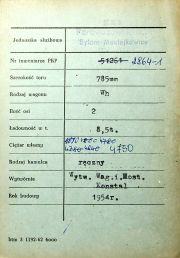 Jednostka służbowa
Bytom-
Nr inwentarza PKP 51261 2864-1
Szerokość toru 785mm
Rodzaj wagonu Wh
Ilość osi 2
Ładowność w t. 8,5t.
Ciężar własny 4750
Rodzaj hamulca ręczny
Wytwórnia Wytw. Wag.i.Most.
Konstal
Rok budowy 1954r.